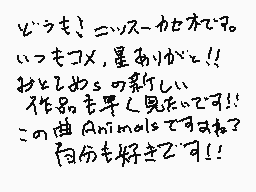 どうも! ニッスーカセオです。
いつもコメ,星ありがと!!
おとてめsの新しい
作品も早く見たいです!!
この曲Animalsですよね?
自分も好きです!!